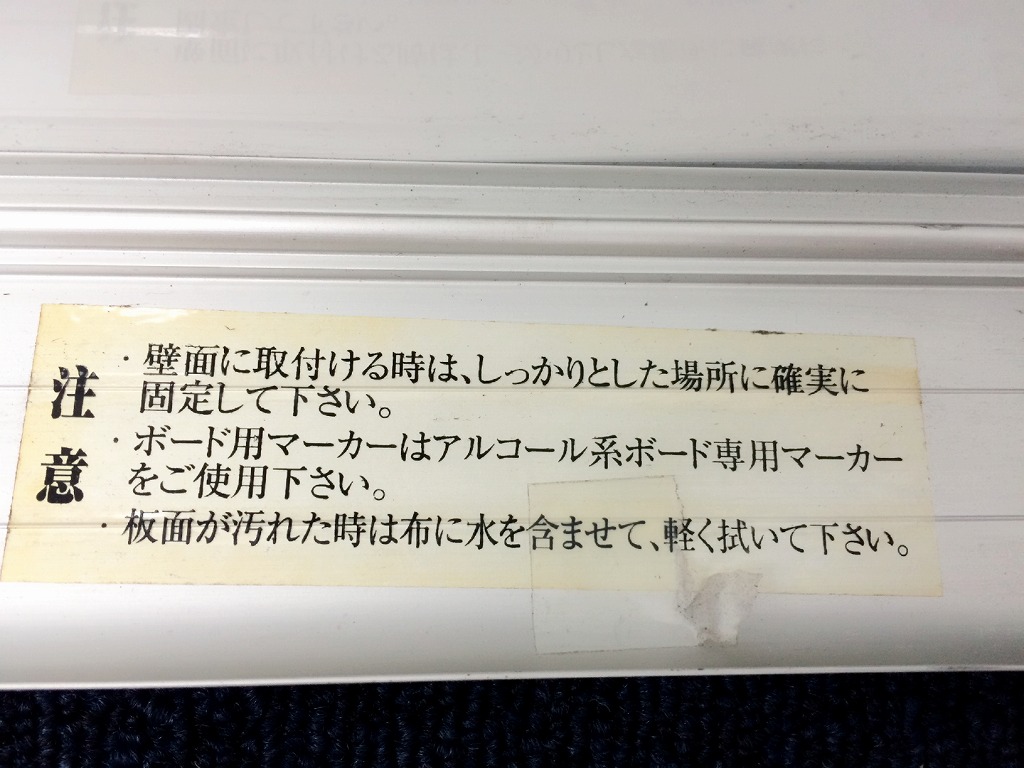 注意
・壁面に取付ける時は、しっかりとした場所に確実に
固定して下さい。
・ボード用マーカーはアルコール系ボード専用マーカー
をご使用下さい。
・板面が汚れた時は布に水を含ませて、軽く拭いて下さい。